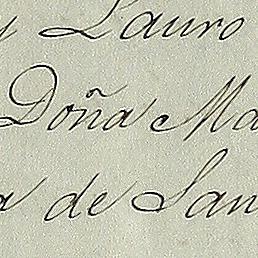 y Lauro
Doña Ma
a de San